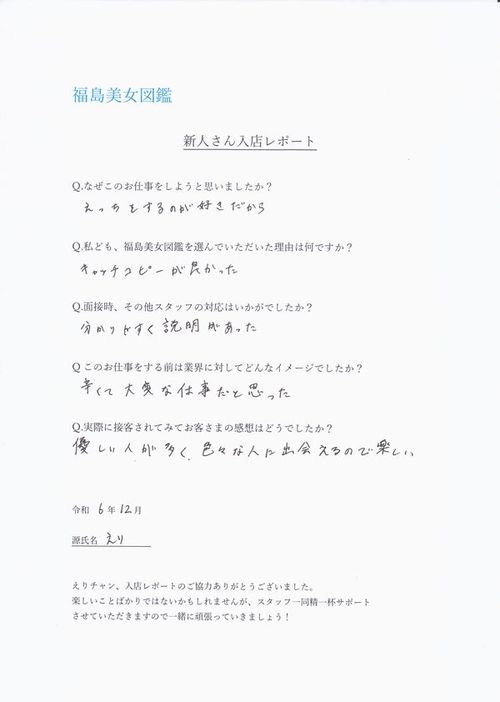 福島美女図鑑
新人さん入店レポート
Q.なぜこのお仕事をしようと思いましたか？
えっちをするのが好きだから
Q.私ども、福島美女図鑑を選んでいただいた理由は何ですか？
キャッチコピーが良かった
Q.面接時、その他スタッフの対応はいかがでしたか？
分かりやすく説明があった
Q このお仕事をする前は業界に対してどんなイメージでしたか？
辛くて大変な仕事だと思った
Q.実際に接客されてみてお客さまの感想はどうでしたか？
優しい人が多く、色々な人に出会えるので楽しい
令和 6 年 12 月
源氏名 えり
えりチャン、入店レポートのご協力ありがとうございました。
楽しいことばかりではないかもしれませんが、スタッフ一同精一杯サポート
させていただきますので一緒に頑張っていきましょう！